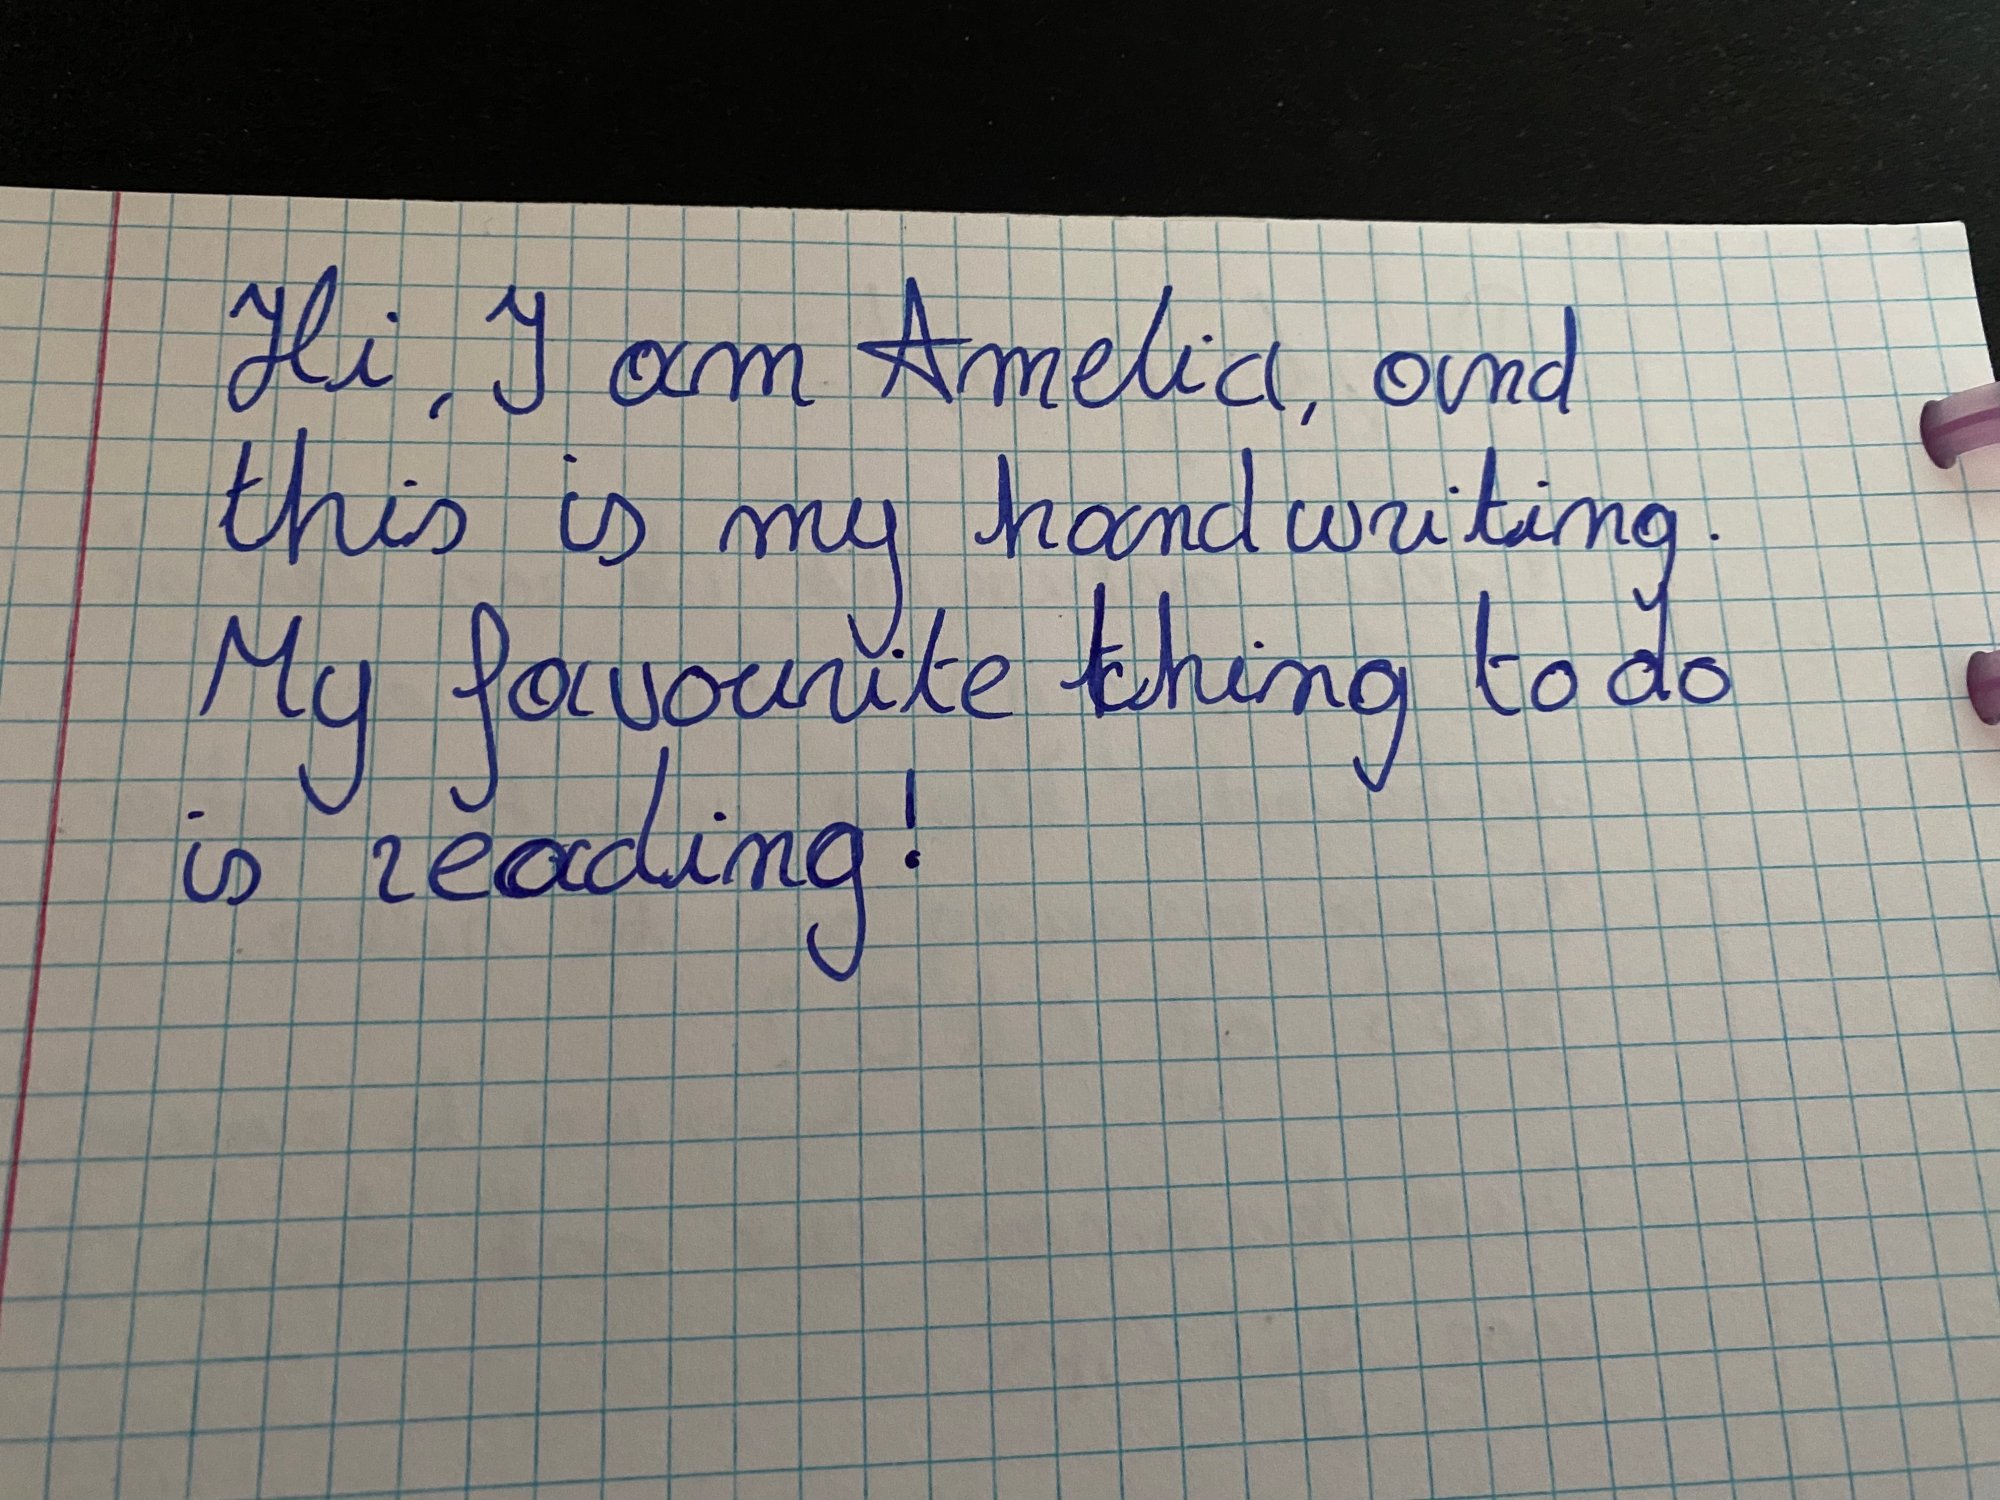 Hi, I am Amelia, and
this is my handwriting.
My favourite thing to do
is reading!